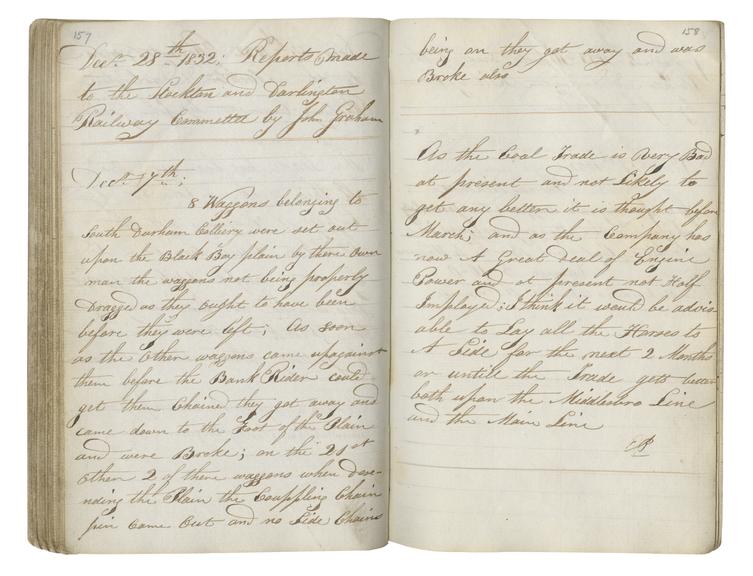 157
Decr. 28th 1832; Reports made
to the Stockton and Darlington
Railway Committe by John Graham
Decr. 17th;
8 Waggons belonging to
South Durham Colliery were set out
upon the Black Boy plain by there Own
man the waggons not being properly
Dragged as they ought to have been
before they were left; As soon
as the Other waggons came up against
them before the Bank Rider could
get them Chained they got away and
came down to the Foot of the Plain
and were Broke; on the 21st
Other 2 of there waggons when dece-
nding the Plain the Couppling Chain
pin Came Out and no Side Chains
158
being on they got away and was
Broke also
As the Coal Trade is Very Bad
at present and not Likely to
get any better it is thought before
March; and as the Company has
now A Great deal of Engine
Power and at present not Half
Imployed; I think it would be advis-
able to Lay all the Horses to
A Side for the next 2 Months
or untill the Trade gets
both upon the Middlesbro Line
and the Main Line